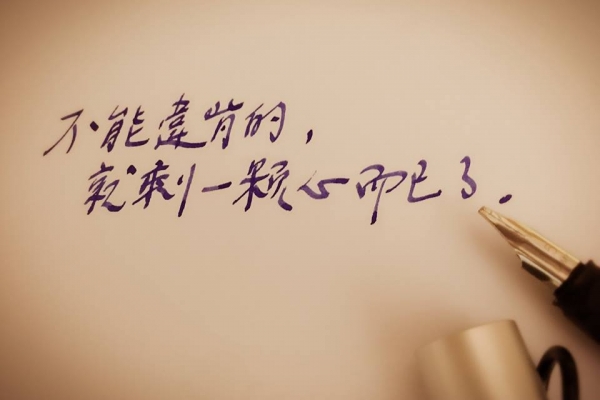 不能違背的，
就剩一顆心而已了。